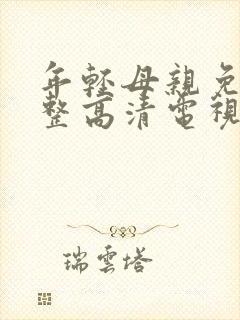 年輕母親免
整高清電視
瑞雲塔